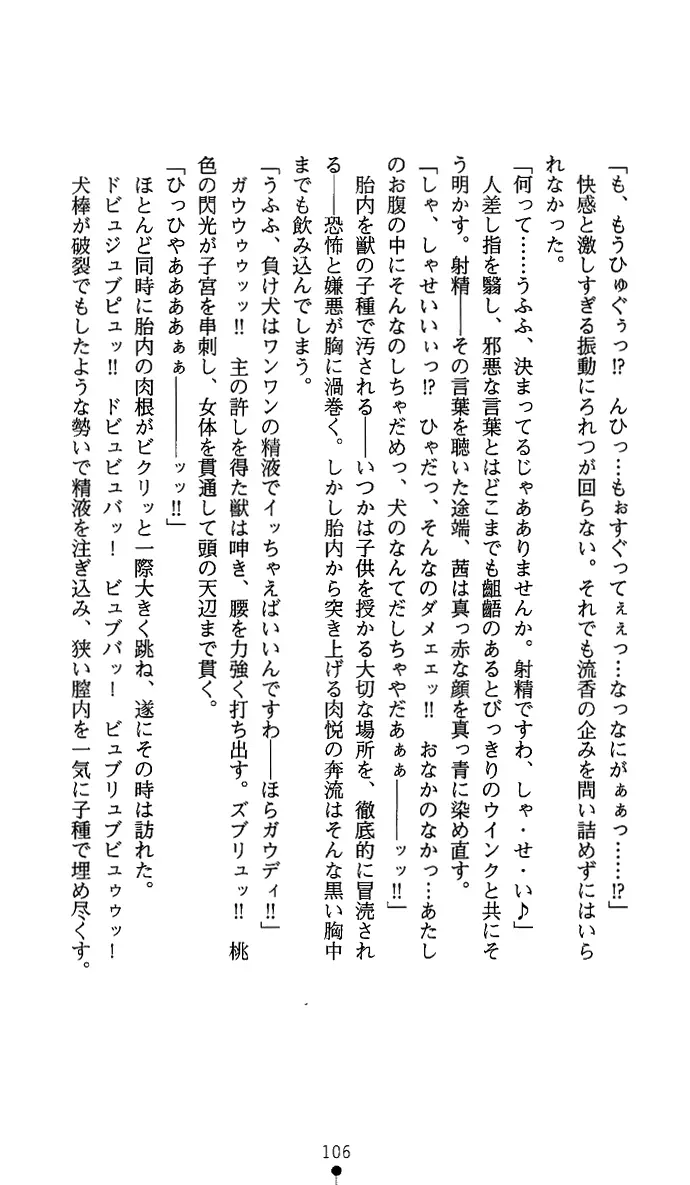 「も、もうひゅぐぅっ!? んひっ…もぉすぐってぇぇっ…なっなにがぁぁっ……!?」
快感と激しすぎる振動にろれつが回らない。それでも流香の企みを問い詰めずにはいら
れなかった。
「何って……うふふ、決まってるじゃあありませんか。射精ですわ、しゃ・せ・い♪」
人差し指を翳し、邪悪な言葉とはどこまでも齟齬のあるとびっきりのウインクと共にそ
う明かす。射精――その言葉を聴いた途端、茜は真っ赤な顔を真っ青に染め直す。
「しゃ、しゃせいいぃっ!? ひゃだっ、そんなのダメェェッ!! おなかのなかっ…あたし
のお腹の中にそんなのしちゃだめっ、犬のなんてだしちゃやだあぁぁ――――ッッ!!」
胎内を獣の子種で汚される――いつかは子供を授かる大切な場所を、徹底的に冒涜され
る――恐怖と嫌悪が胸に渦巻く。しかし胎内から突き上げる肉悦の奔流はそんな黒い胸中
までも飲み込んでしまう。
「うふふ、負け犬はワンワンの精液でイッちゃえばいいんですわ――ほらガウディ!!」
ガウウゥゥッッ!! 主の許しを得た獣は呻き、腰を力強く打ち出す。ズブリュッ!! 桃
色の閃光が子宮を串刺し、女体を貫通して頭の天辺まで貫く。
「ひっひやああああぁぁ――――ッッ!!」
ほとんど同時に胎内の肉根がビクリッと一際大きく跳ね、遂にその時は訪れた。
ドビュジュブピュッ!! ドビュビュバッ! ビュブバッ! ビュブリュブビュゥゥッ!
犬棒が破裂でもしたような勢いで精液を注ぎ込み、狭い膣内を一気に子種で埋め尽くす。
106